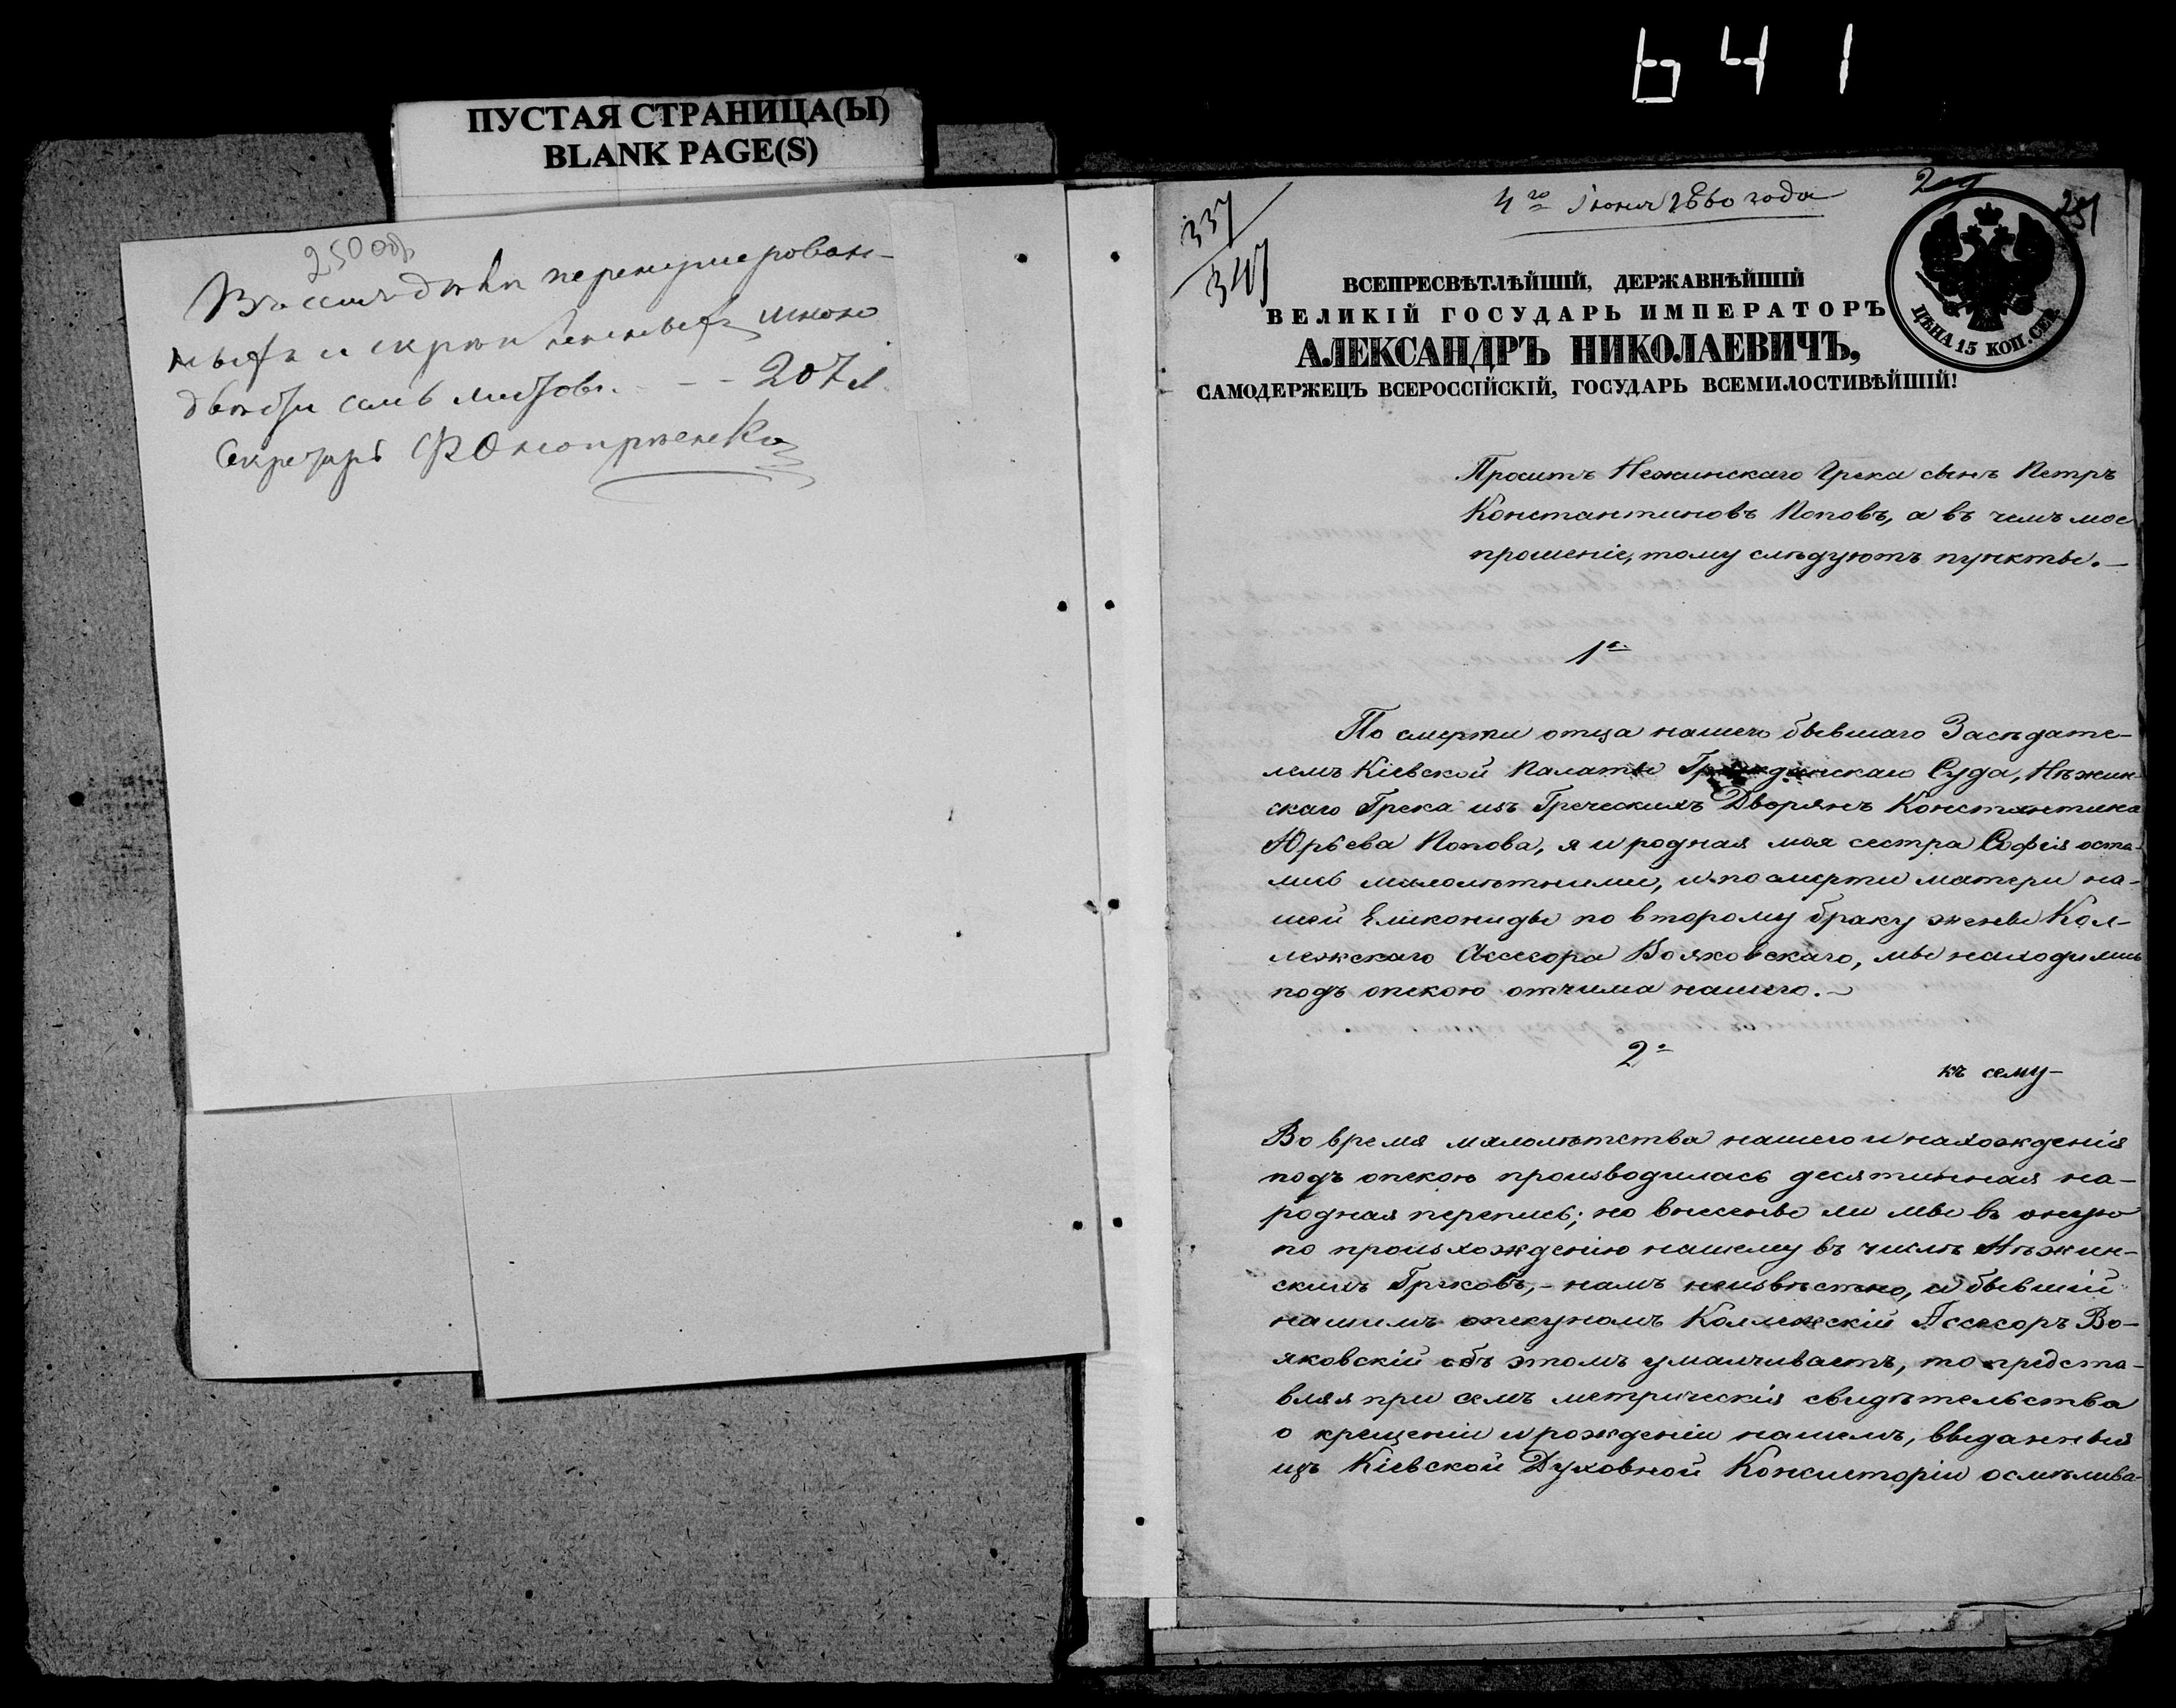 641
ПУСТАЯ СТРАНИЦА(Ы)
BLANK PAGE(S)
250 об
Въ семъ дѣлѣ перенумерован-
ныхъ и скрѣпленныхъ мною
двѣсти семь листовъ. - - 207 л.
Секретарь
337
347
4го Іюня 1860 года
251
ЦѢНА 15 КОП. СЕР.
ВСЕПРЕСВѢТЛѢЙШІЙ, ДЕРЖАВНѢЙШІЙ
ВЕЛИКІЙ ГОСУДАРЬ ИМПЕРАТОРЪ
АЛЕКСАНДРЪ НИКОЛАЕВИЧЪ,
САМОДЕРЖЕЦЪ ВСЕРОССІЙСКІЙ, ГОСУДАРЬ ВСЕМИЛОСТИВѢЙШІЙ!
Проситъ Нежинскаго Грека сынъ Петръ
Константиновъ Поповъ, а въ чемъ мое
прошеніе, тому слѣдуютъ пункты.—
1е
По смерти отца нашего бывшаго Засѣдате-
лемъ Кіевской Палаты Гражданскаго Суда, Нѣжин-
скаго Грека изъ Греческихъ Дворянъ Константина
Юрьева Попова, я и родная моя сестра Софія оста-
лись малолѣтними, и по смерти матери на-
шей Еликониды по второму браку жены Кол-
лежскаго Асессора Вояковскаго, мы находились
подъ опекою отчима нашего.—
2е
къ сему-
Во время малолѣтства нашего и нахожденія
подъ опекою производилась десятинная на-
родная перепись; но внесены ли мы въ оную
по происхожденію нашему въ числѣ Нѣжин-
скихъ Грековъ,- намъ неизвѣстно, и бывшій
нашимъ опекуномъ Коллежскій Ассесоръ Во-
яковскій объ этомъ умалчиваетъ, то предста-
вляя при семъ метрическія свидѣтельства
о крещеніи и рожденіи нашемъ, выданныя
изъ Кіевской Духовной Консисторіи осмѣлива-